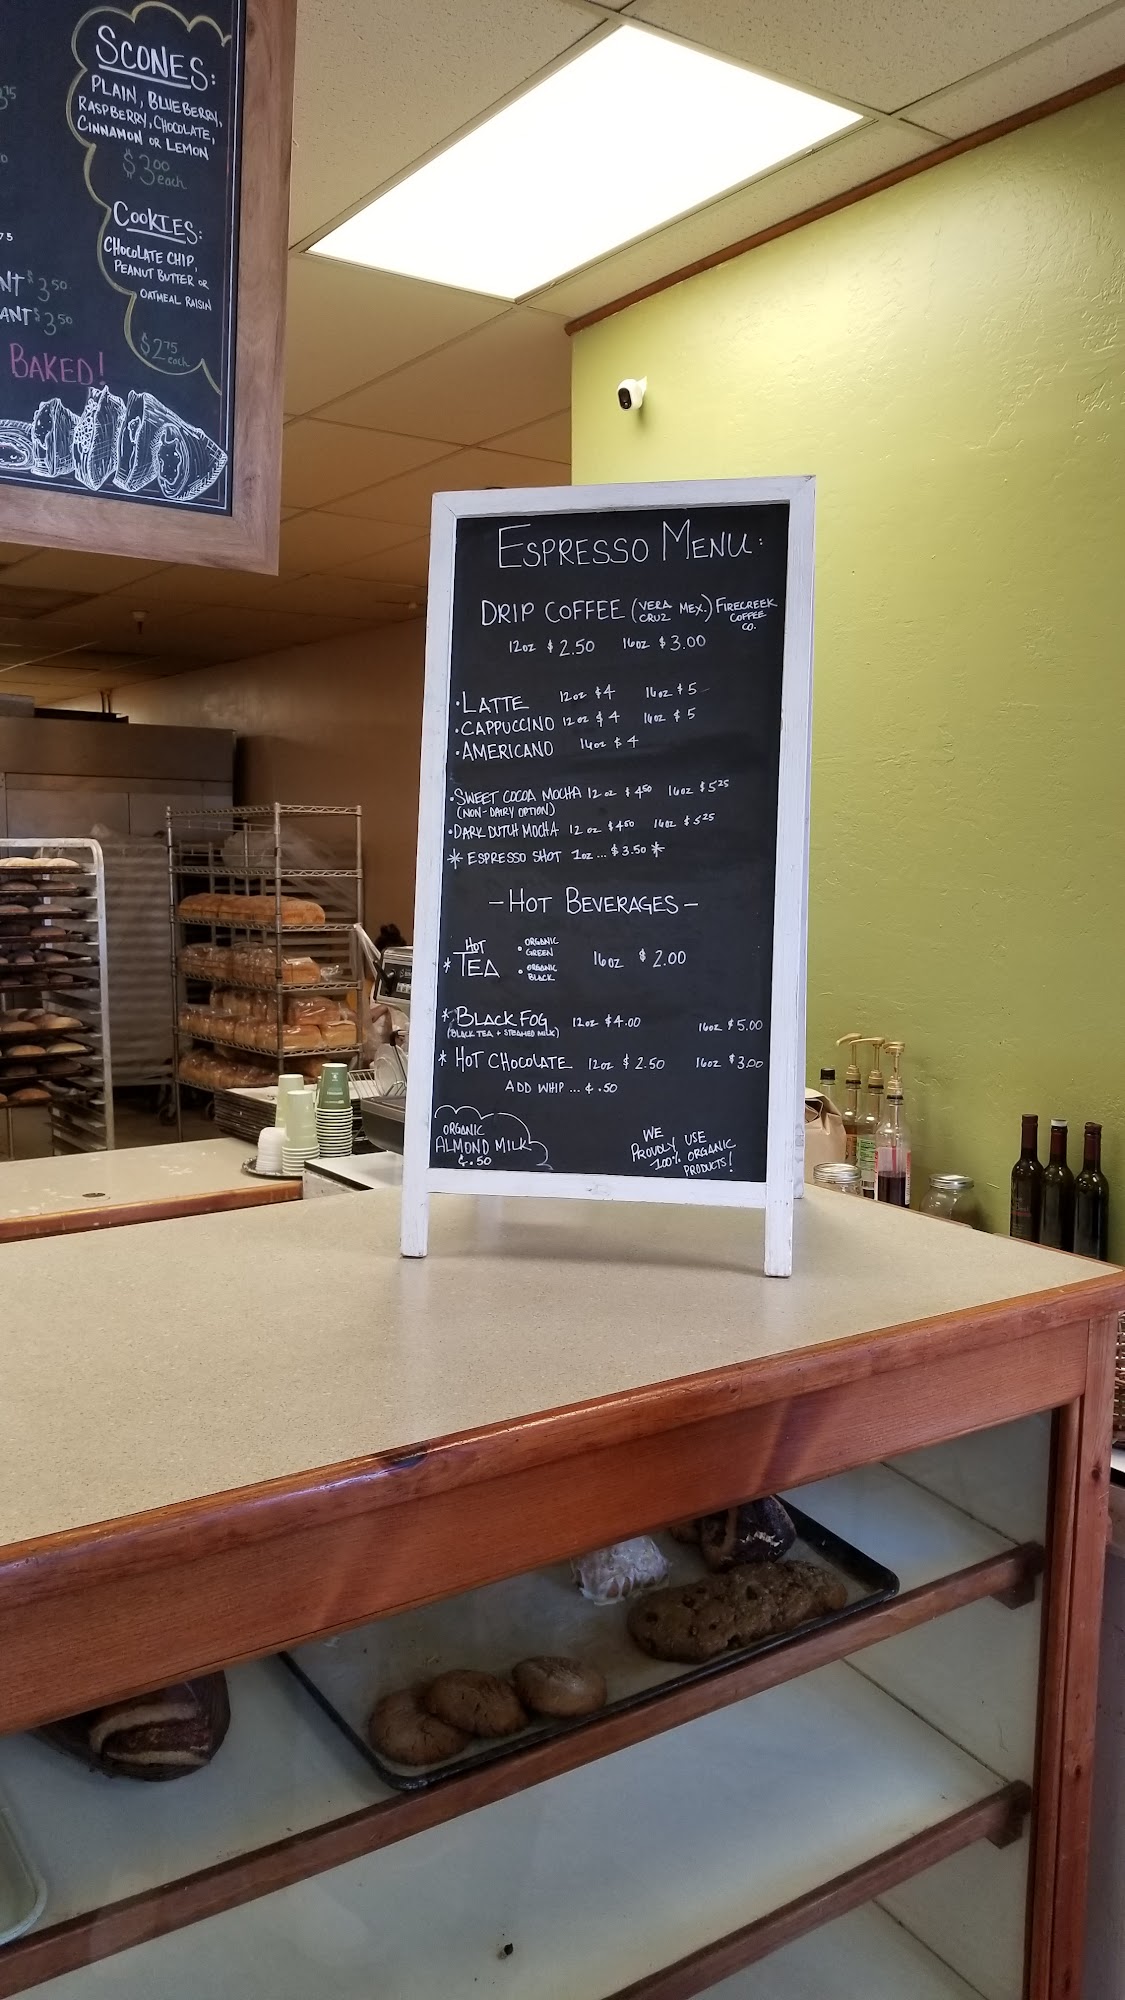 SCONES:
PLAIN, BLUEBERRY,
RASPBERRY, CHOCOLATE,
CINNAMON OR LEMON
$3.00 each
COOKIES:
CHOCOLATE CHIP,
PEANUT BUTTER OR
OATMEAL RAISIN
$2.75 each
NT $3.50
ANT $3.50
BAKED!
ESPRESSO MENU:
DRIP COFFEE (VERA CRUZ MEX.) FIRECREEK COFFEE CO.
12oz $2.50 16oz $3.00
• LATTE 12oz $4 16oz $5
• CAPPUCCINO 12oz $4 16oz $5
• AMERICANO 16oz $4
• SWEET COCOA MOCHA 12oz $4.50 16oz $5.25
(NON-DAIRY OPTION)
• DARK DUTCH MOCHA 12oz $4.50 16oz $5.25
* ESPRESSO SHOT 1oz... $3.50 *
- HOT BEVERAGES -
* HOT TEA • ORGANIC GREEN • ORGANIC BLACK 16oz $2.00
* BLACK FOG 12oz $4.00 16oz $5.00
(BLACK TEA + STEAMED MILK)
* HOT CHOCOLATE 12oz $2.50 16oz $3.00
ADD WHIP ... $.50
ORGANIC
ALMOND MILK
$.50
WE
PROUDLY USE
100% ORGANIC
PRODUCTS!